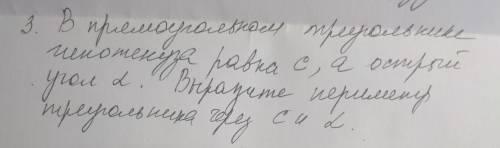 3. В прямоугольном треугольнике
гипотенуза равна c, а острый
угол α. Выразите периметр
треугольника через c и α.